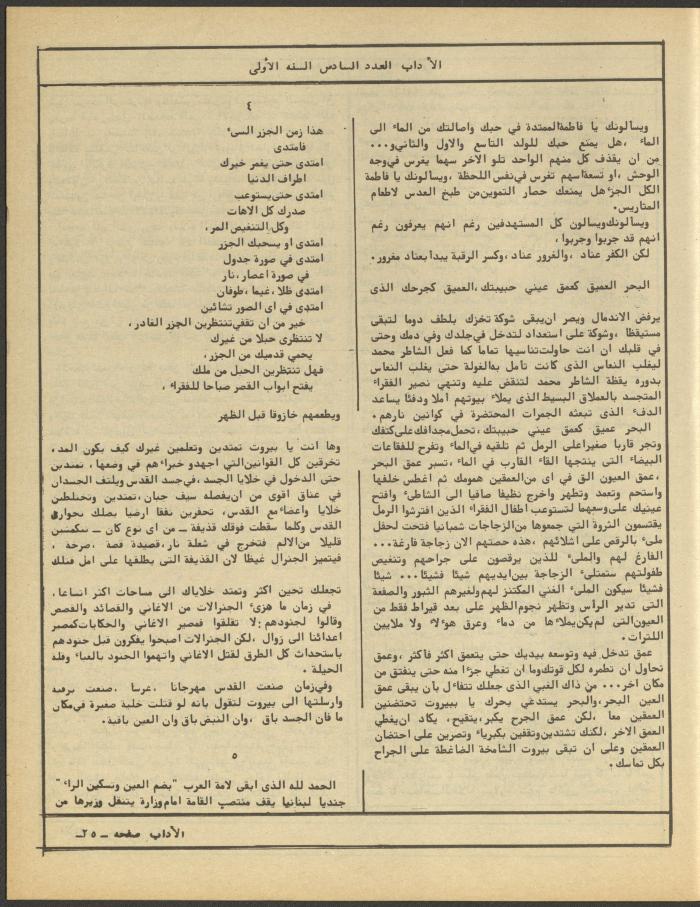 الآداب العدد السادس السنه الأولى
ويسألونك يا فاطمةالممتدة في حبك واصالتك من الماء الى
الماء ،هل يمنع حبك للولد التاسع والاول والثانيو...
من ان يقذف كل منهم الواحد تلو الاخر سهما يغرس فيوجه
الوحش ،او تسعةاسهم تغرس فينفس اللحظة ،ويسألونك يا فاطمة
الكل الجزءهل يمنعك حصار التموينمن طبخ العدس لاطعام
المتاريس.
ويسألونكويسالون كل المستهدفين رغم انهم يعرفون رغم
انهم قد جربوا وجربوا،
لكن الكفر عناد ،والغرور عناد ،وكسر الرقبة يبدأبعناد مغرور.
البحر العميق كعمق عيني حبيبتك،العميق كجرحك الذى
يرفض الاندمال ويصر انيبقى شوكة تخزك بلطف دوما لتبقى
مستيقظا ،وشوكة على استعداد لتدخل فيجلدك وفي دمك وحتى
في قلبك ان انت حاولتتناسيها تماما كما فعل الشاطر محمد
ليغلب النعاس الذى كانت تأمل بهالغولة حتى يغلب النعاس
بدوره يقظة الشاطر محمد لتنقض عليه وتنهي نصير الفقراء
المتجسد بالعملاق البسيط الذى يملاء بيوتهم أملا ودفئا يساعد
الدفء الذى تبعثه الجمرات المحتضرة في كوانين نارهم.
البحر عميق كعمق عيني حبيبتك،تحمل مجدافك علىكتفك
وتجر قاربا صغيراعلى الرمل ثم تلقيه فيالماء وتفرح للفقاعات
البيضاء التى ينتجها القاء القارب في الماء،تسبر عمق البحر
،عمق العيون الق في اى منالعمقين همومك ثم اغطس خلفها
واستحم وتعمد وتطهر واخرج نظيفا صافيا الى الشاطىء وافتح
عينيك علىوسعهما لتستوعب اطفال الفقراء الذين افترشوا الرمل
يقتسمون الثروة التي جمعوها منالزجاجات شمبانيا فتحت لحفل
ملىء بالرقص على اشلائهم ،هذه حصتهم الان زجاجة فارغة...
الفارغ لهم والملىء للذين يرقصون على جراحهم وتتغيص
طفولتهم ستمتلىء الزجاجة بينايديهم شيئا فشيئا... شيئا
فشيئا سيكون الملىء الغني المكتنز لهمولغيرهم الثبور والصفعة
التى تدير الرأس وتظهر نجومالظهر على بعد قيراط فقط من
العيونالتى لميكنيملاءها من دماء وعرق هؤلاء ولا ملايين
اللترات.
عمق تدخل فيه وتوسعه بيديك حتى يتعمق اكثر فأكثر ،وعمق
تحاول ان تطمره لكل قوتكوما ان تغطي جزءا منه حتى ينفتق من
مكان اخر... من ذاك الغبي الذى جعلك تتفاءل بأن يبقى عمق
العين البحر،والبحر يستدعي بحرك يا ببيروت تحتضنين
العمقين معا ،لكن عمق الجرح يكبر،يتقيح، يكاد انيغطي
العمق الاخر ،لكنك تشتدينوتقفين بكبرياء وتصرين على احتضان
العمقين وعلى ان تبقى بيروت الشامخة الضاغطة على الجراح
بكل تماسك.
٤
هذا زمن الجزر السىء
فامتدى
امتدى حتى يغمر خيرك
اطراف الدنيا
امتدى حتىيستوعب
صدرك كل الاهات
وكل التنغيص المر،
امتدى او يسحبك الجزر
امتدى في صورة جدول
في صورة اعصار،نار
امتدى ظلا،غيما،طوفان
امتدى في اى الصور تشائين
خير من ان تقفيتنتظرين الجزر الغادر،
لا تنتظرى حبلا من غيرك
يحمي قدميك من الجزر،
فهل تنتظرين الحبل من ملك
يفتح ابواب القصر صباحا للفقراء،
ويطعمهم خازوقا قبل الظهر
وها انت يا بيروت تمتدين وتعلمين غيرك كيف يكون المد،
تخرقين كل القوانينالتي اجهدو خبراءهم في وضعها، تمتدين
حتى الدخول في خلايا الجسد ،في جسد القدس ويلتف الجسدان
في عناق اقوى من انيفصله سيف جبان،تمتدين وتختلطين
خلايا واعضاء مع القدس، تحفرين نفقا ارضيا يصلك بحوارى
القدس وكلما سقطت فوقك قذيفة ــ من اى نوع كان ــ تنكمشين
قليلا منالالم فتخرج في شعلة نار،قصيدة قصة ،صرخة ،
فيتميز الجنرال غيظا لان القذيفة التى يطلقها على امل قتلك
تجعلك تحيين اكثر وتمتد خلاياك الى مساحات اكثر اتساعا.
في زمان ما هزىء الجنرالات من الاغاني والقصائد والقصص
وقالوا لجنودهم:لا تقلقوا فمصير الاغاني والحكاياتكمصير
اعدائنا الى زوال ،لكن الجنرالات اصبحوا يفكرون قبل جنودهم
باستحداث كل الطرق لقتل الاغاني واتهموا الجنود بالغباء وقلة
الحيلة .
وفيزمان صنعت القدس مهرجانا، عرسا، صنعت برقية
وارسلتها الى بيروت لتقول بانه لو قتلت خلية صغيرة فيمكان
ما فان الجسد باق ،وان النبض باق وان العين باقية.
٥
الحمد لله الذى ابقى لامة العرب "بضم العين وتسكين الراء"
جنديا لبنانيا يقف منتصب القامة اماموزارة يتنقل وزيرها من
الآداب صفحه ــ ٢٥ــ